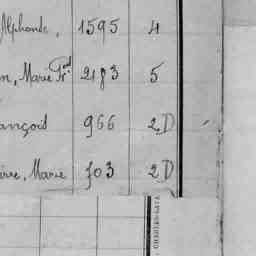 Alphonse, 1595 4
n, Marie Frd 2183 5
ançois 966 2D
Marie 703 2D